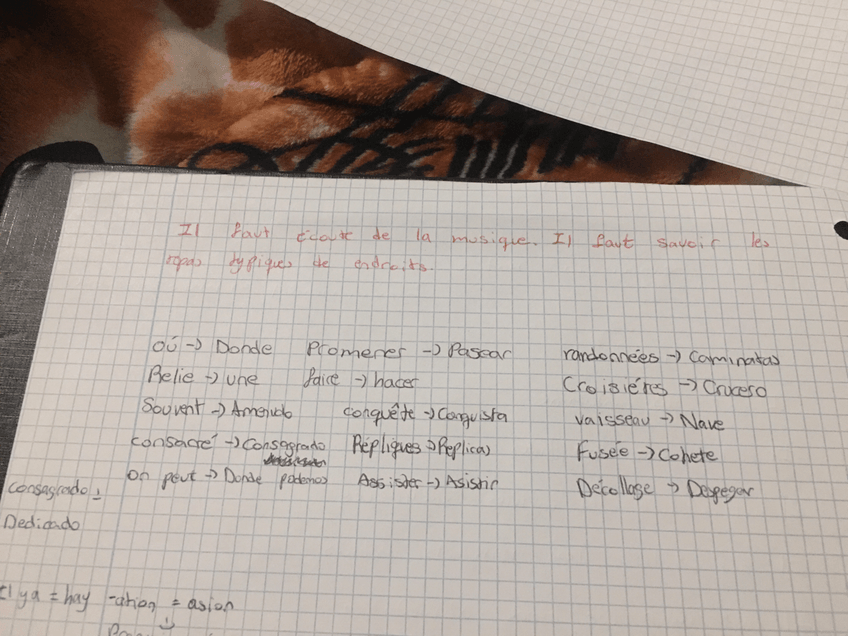 Il faut écoute de la musique. Il faut savoir les
repas typiques de endroits.
où → Donde Promener → Pasear randonnées → Caminatas
Relie → une faire → hacer Croisiéres → Crucero
Souvent → Amenudo conquête → Conquista vaisseau → Nave
consacré → Consagrado Répliques → Replicas Fusée → Cohete
on peut → Donde podemos Assister → Asistir Décollage → Despegar
Consagrado =
Dedicado
Il ya = hay -ation = asion